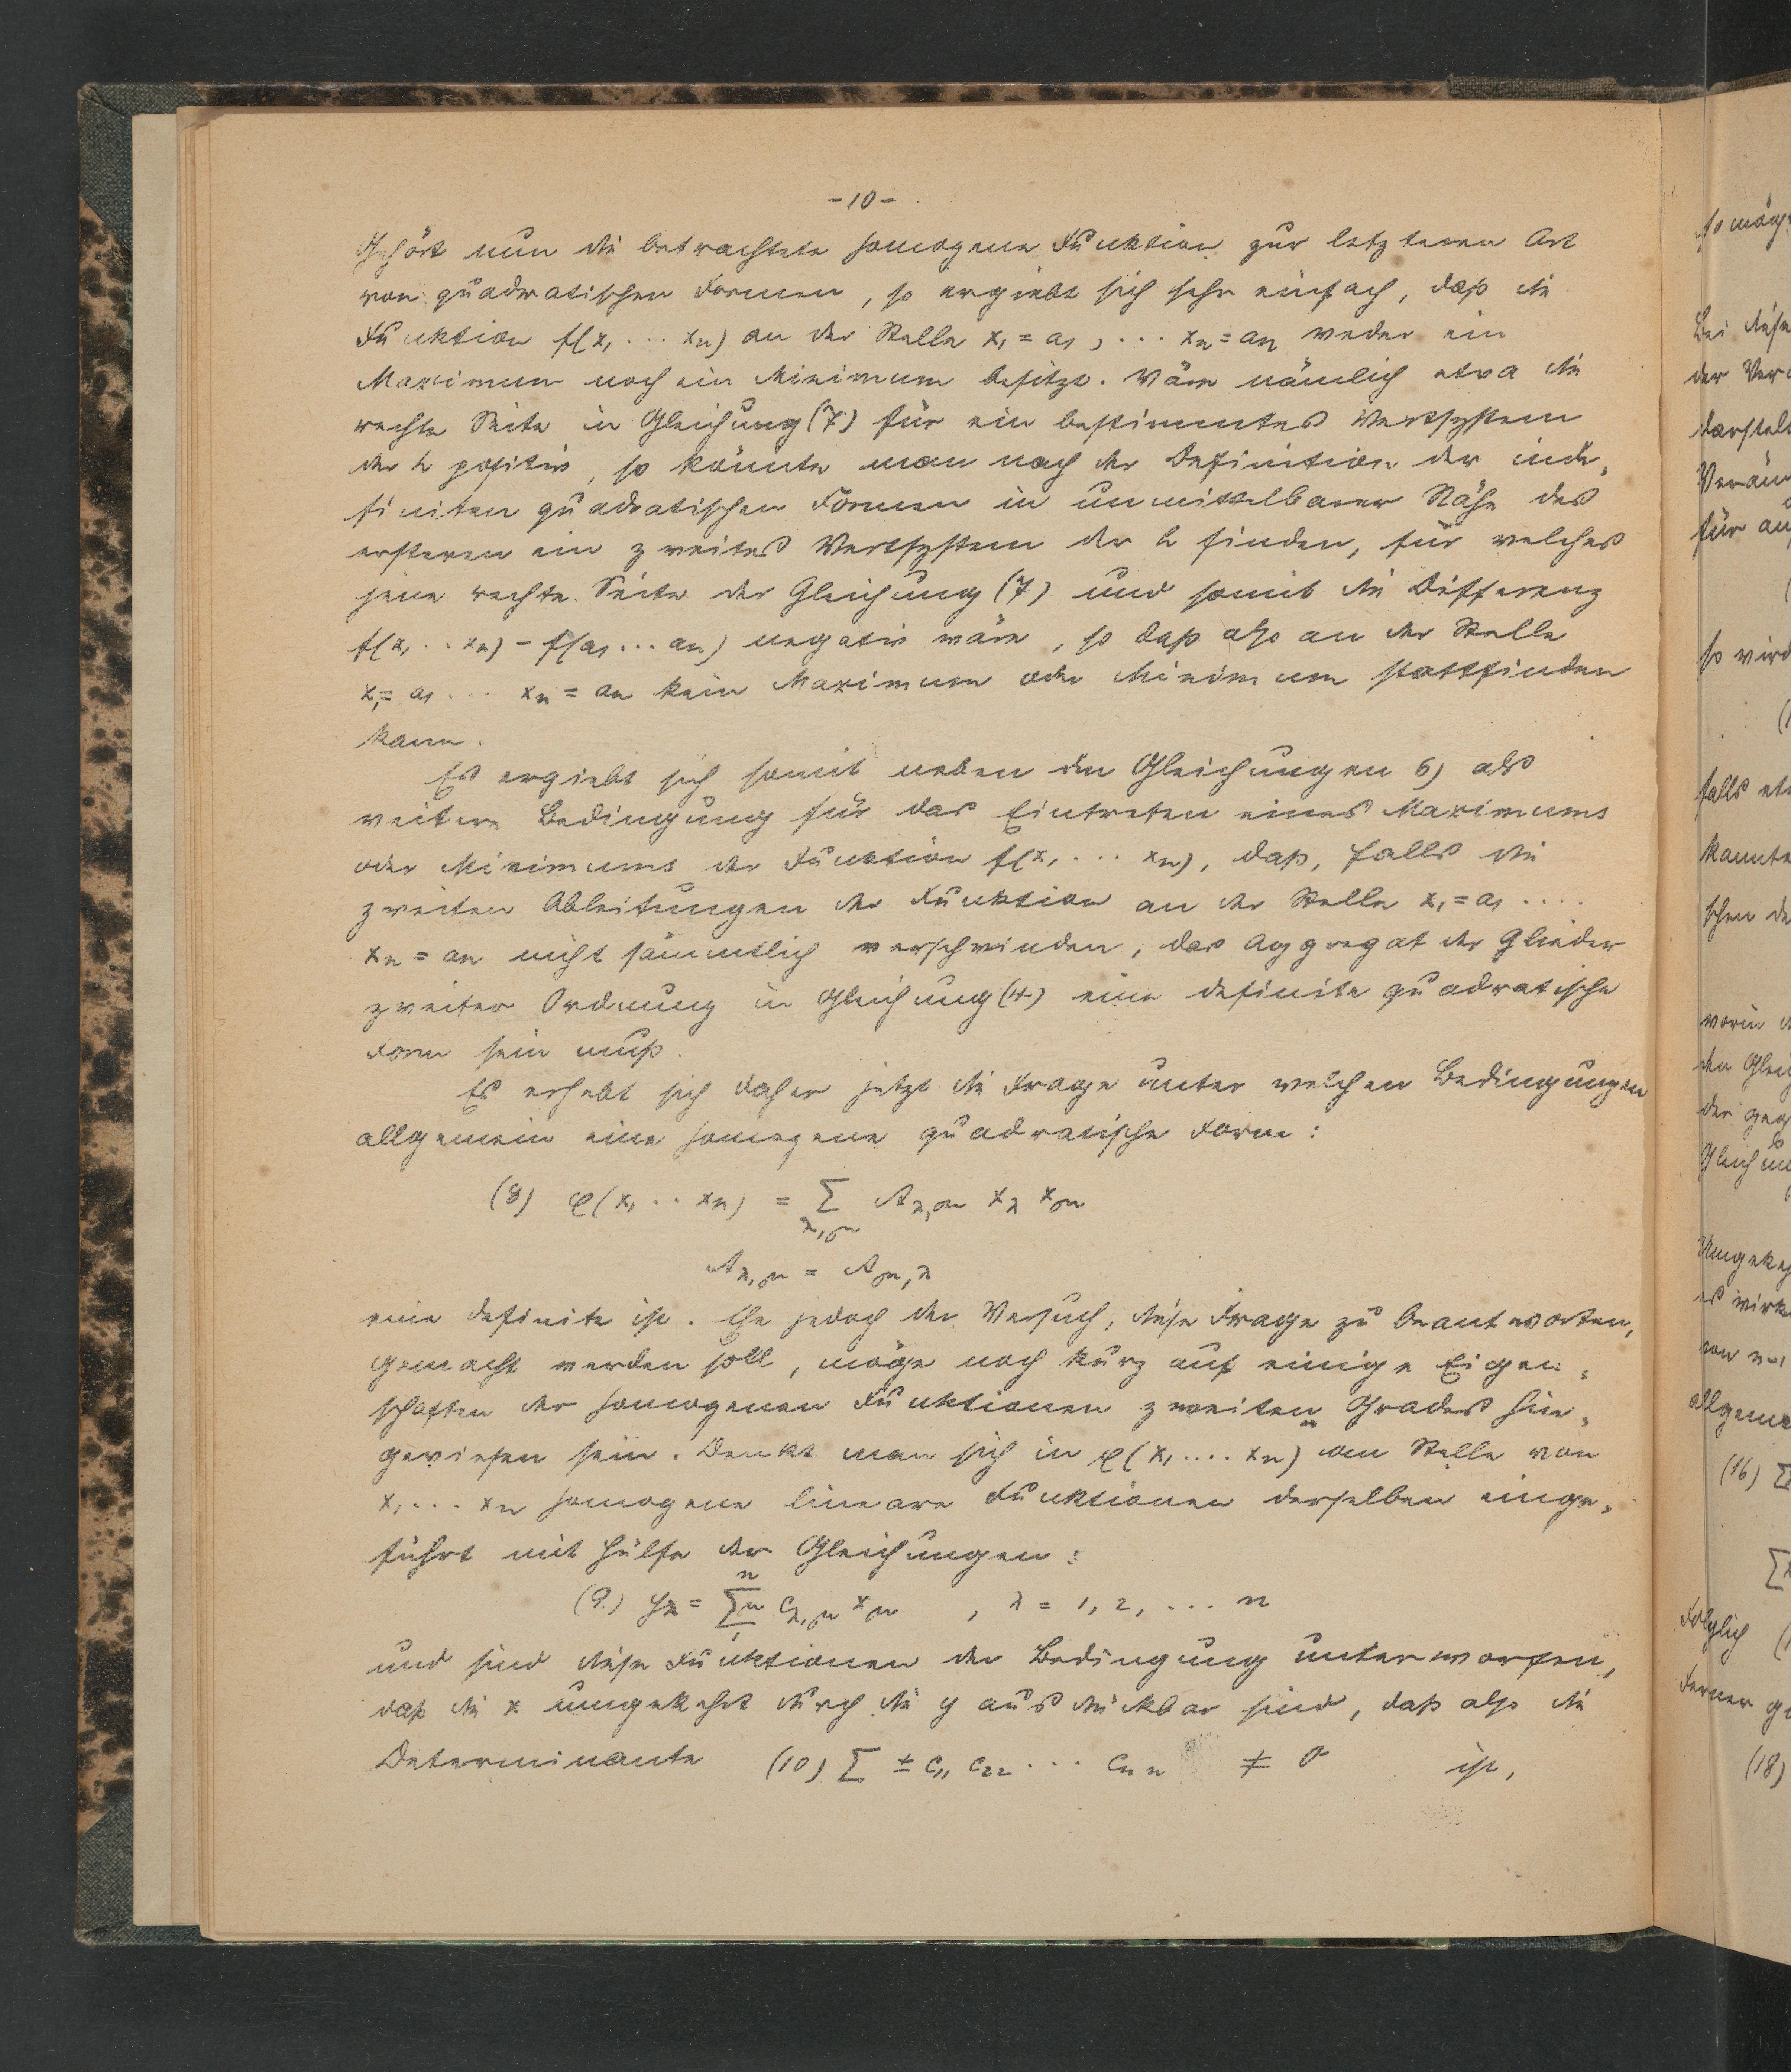 -10-
Gehört nun die betrachtete homogene Funktion zur letzteren Art
von quadratischen Formen, so ergiebt sich sehr einfach, daß die
Funktion f(x₁ ... xₙ) an der Stelle x₁ = a₁, ... xₙ = aₙ weder ein
Maximum noch ein Minimum besitzt. Wäre nämlich etwa die
rechte Seite in Gleichung (7) für ein bestimmtes Wertsystem
der h positiv, so könnte man nach der Definition der inde-
finiten quadratischen Formen in unmittelbarer Nähe des
ersteren ein zweites Wertsystem der h finden, für welches
jene rechte Seite der Gleichung (7) und somit die Differenz
f(x₁ .. xₙ) - f(a₁ ... aₙ) negativ wäre, so daß also an der Stelle
x₁ = a₁ ... xₙ = aₙ kein Maximum oder Minimum stattfinden
kann.
Es ergiebt sich somit neben den Gleichungen 6) als
weitere Bedingung für das Eintreten eines Maximums
oder Minimums der Funktion f(x₁ ... xₙ), daß, falls die
zweiten Ableitungen der Funktion an der Stelle x₁ = a₁ ....
xₙ = aₙ nicht sämmtlich verschwinden, das Aggregat der Glieder
zweiter Ordnung in Gleichung (4) eine definite quadratische
Form sein muß.
Es erhebt sich daher jetzt die Frage unter welchen Bedingungen
allgemein eine homogene quadratische Form:
(8) φ(x₁ .. xₙ) = Σ A_λ,μ x_λ x_μ
λ,μ
A_λ,μ = A_μ,λ
eine definite ist. Ehe jedoch der Versuch, diese Frage zu beantworten,
gemacht werden soll, möge noch kurz auf einige Eigen-
schaften der homogenen Funktionen zweiten Grades hin-
gewiesen sein. Denkt man sich in φ(x₁ .... xₙ) an Stelle von
x₁ ... xₙ homogene lineare Funktionen derselben einge-
führt mit Hülfe der Gleichungen:
n
(9.) y_λ = Σ_μ c_λ,μ x_μ , λ = 1, 2, ... n
1
und sind diese Funktionen der Bedingung unterworfen,
daß die x umgekehrt durch die y ausdrückbar sind, daß also die
Determinante (10) Σ ± c₁₁ c₂₂ ... cₙₙ ≠ 0 ist,
so mög
Bei diese
der Ver
darstell
Verän
für au
so wird
falls et
kannte
schen de
worin
den Glei
der geg
Gleichu
Umgekeh
es wirk
von
allgeme
(16) Σ
Σ
Folglich
Ferner
(18)